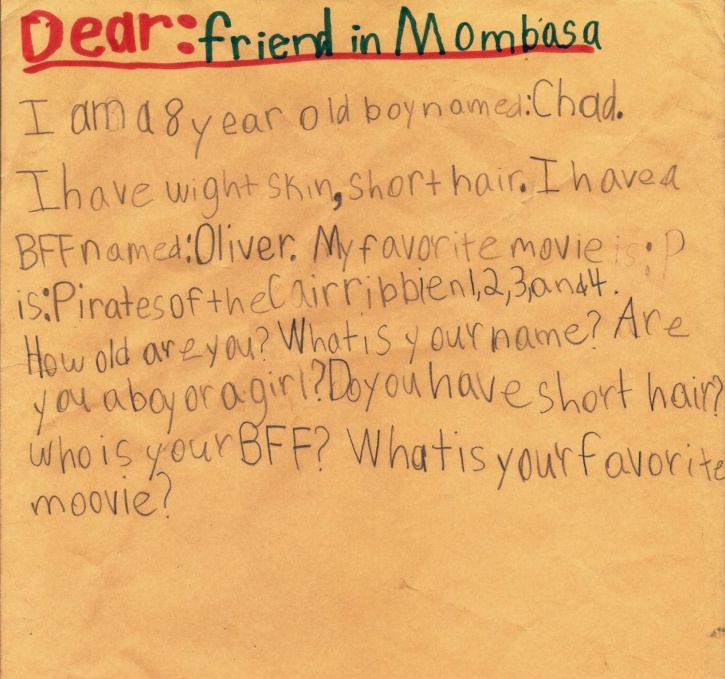 Dear: friend in Mombasa
I am a 8 year old boy named: Chad.
I have wight skin, short hair. I have a
BFF named: Oliver. My favorite movie is: P
is: Pirates of the Cairribbien 1,2,3, and 4.
How old are you? What is your name? Are
you a boy or a girl? Do you have short hair?
who is your BFF? What is your favorite
moovie?